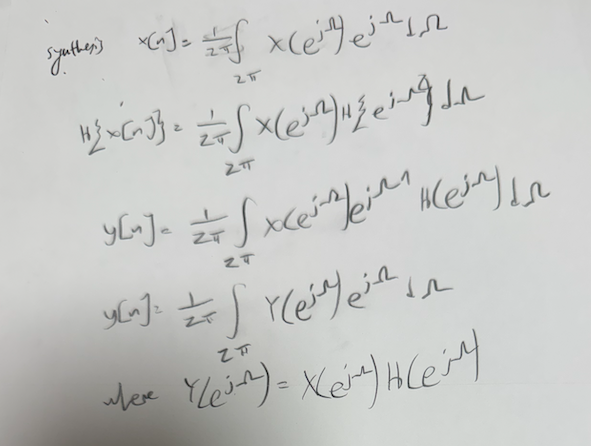 synthesis x[n] = 1/2π ∫_2π X(e^jΩ) e^jΩ dΩ
H{x[n]} = 1/2π ∫_2π X(e^jΩ) H{e^jΩn} dΩ
y[n] = 1/2π ∫_2π X(e^jΩ) e^jΩn H(e^jΩ) dΩ
y[n] = 1/2π ∫_2π Y(e^jΩ) e^jΩ dΩ
where Y(e^jΩ) = X(e^jΩ) H(e^jΩ)